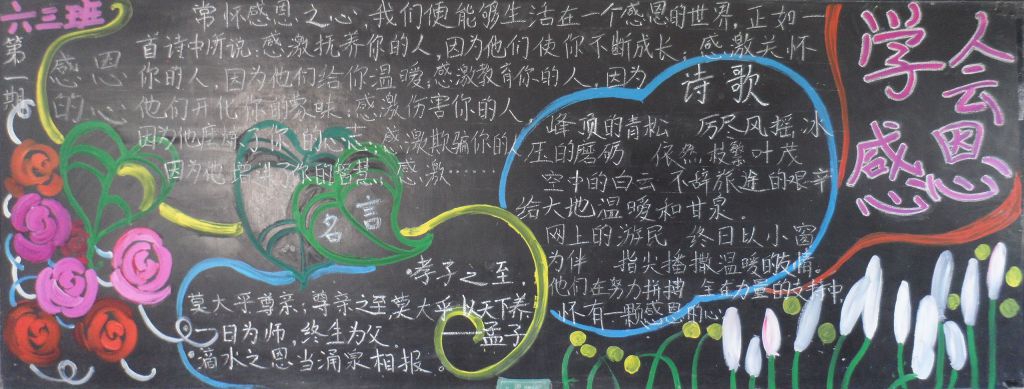 六三班
第一期
感恩的心
常怀感恩之心,我们便能够生活在一个感恩的世界,正如一
首诗中所说:感激抚养你的人,因为他们使你不断成长;感激关怀
你的人,因为他们给你温暖;感激教育你的人,因为
他们开化你的蒙昧;感激伤害你的人,
因为他磨练了你的心志;感激欺骗你的人
因为他增进了你的智慧;感激……
诗歌
峰顶的青松 历尽风摇冰
压的磨砺 依然枝繁叶茂
空中的白云 不辞旅途的艰辛
给大地温暖和甘泉.
网上的游民 终日以小窗
为伴 指尖播撒温暖的友情。
他们在努力拼搏 全在力量的支持中,
怀有一颗感恩的心
学会感恩
名言
·孝子之至,
莫大乎尊亲;尊亲之至,莫大乎以天下养
——孟子
一日为师,终生为父.
·滴水之恩当涌泉相报。